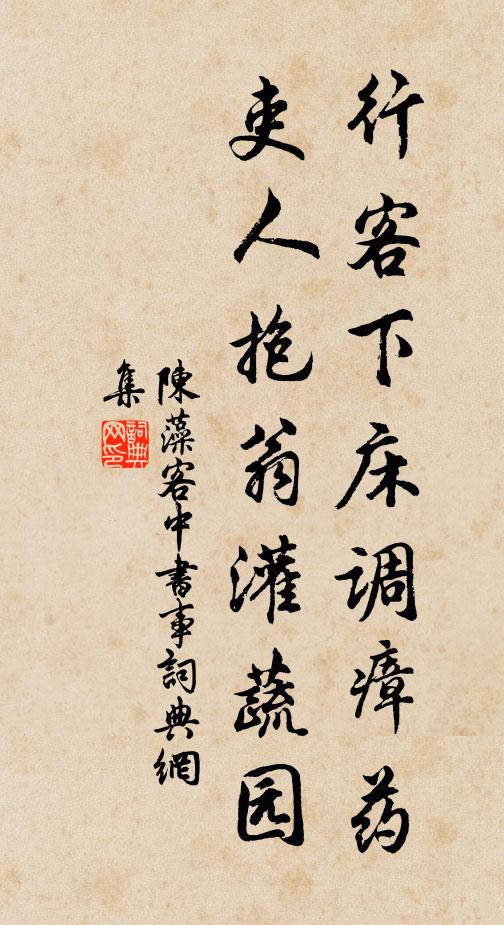 行客下床调瘴药
吏人抱翁灌蔬园
陳藻客中書事詞典網
集
詞典網印